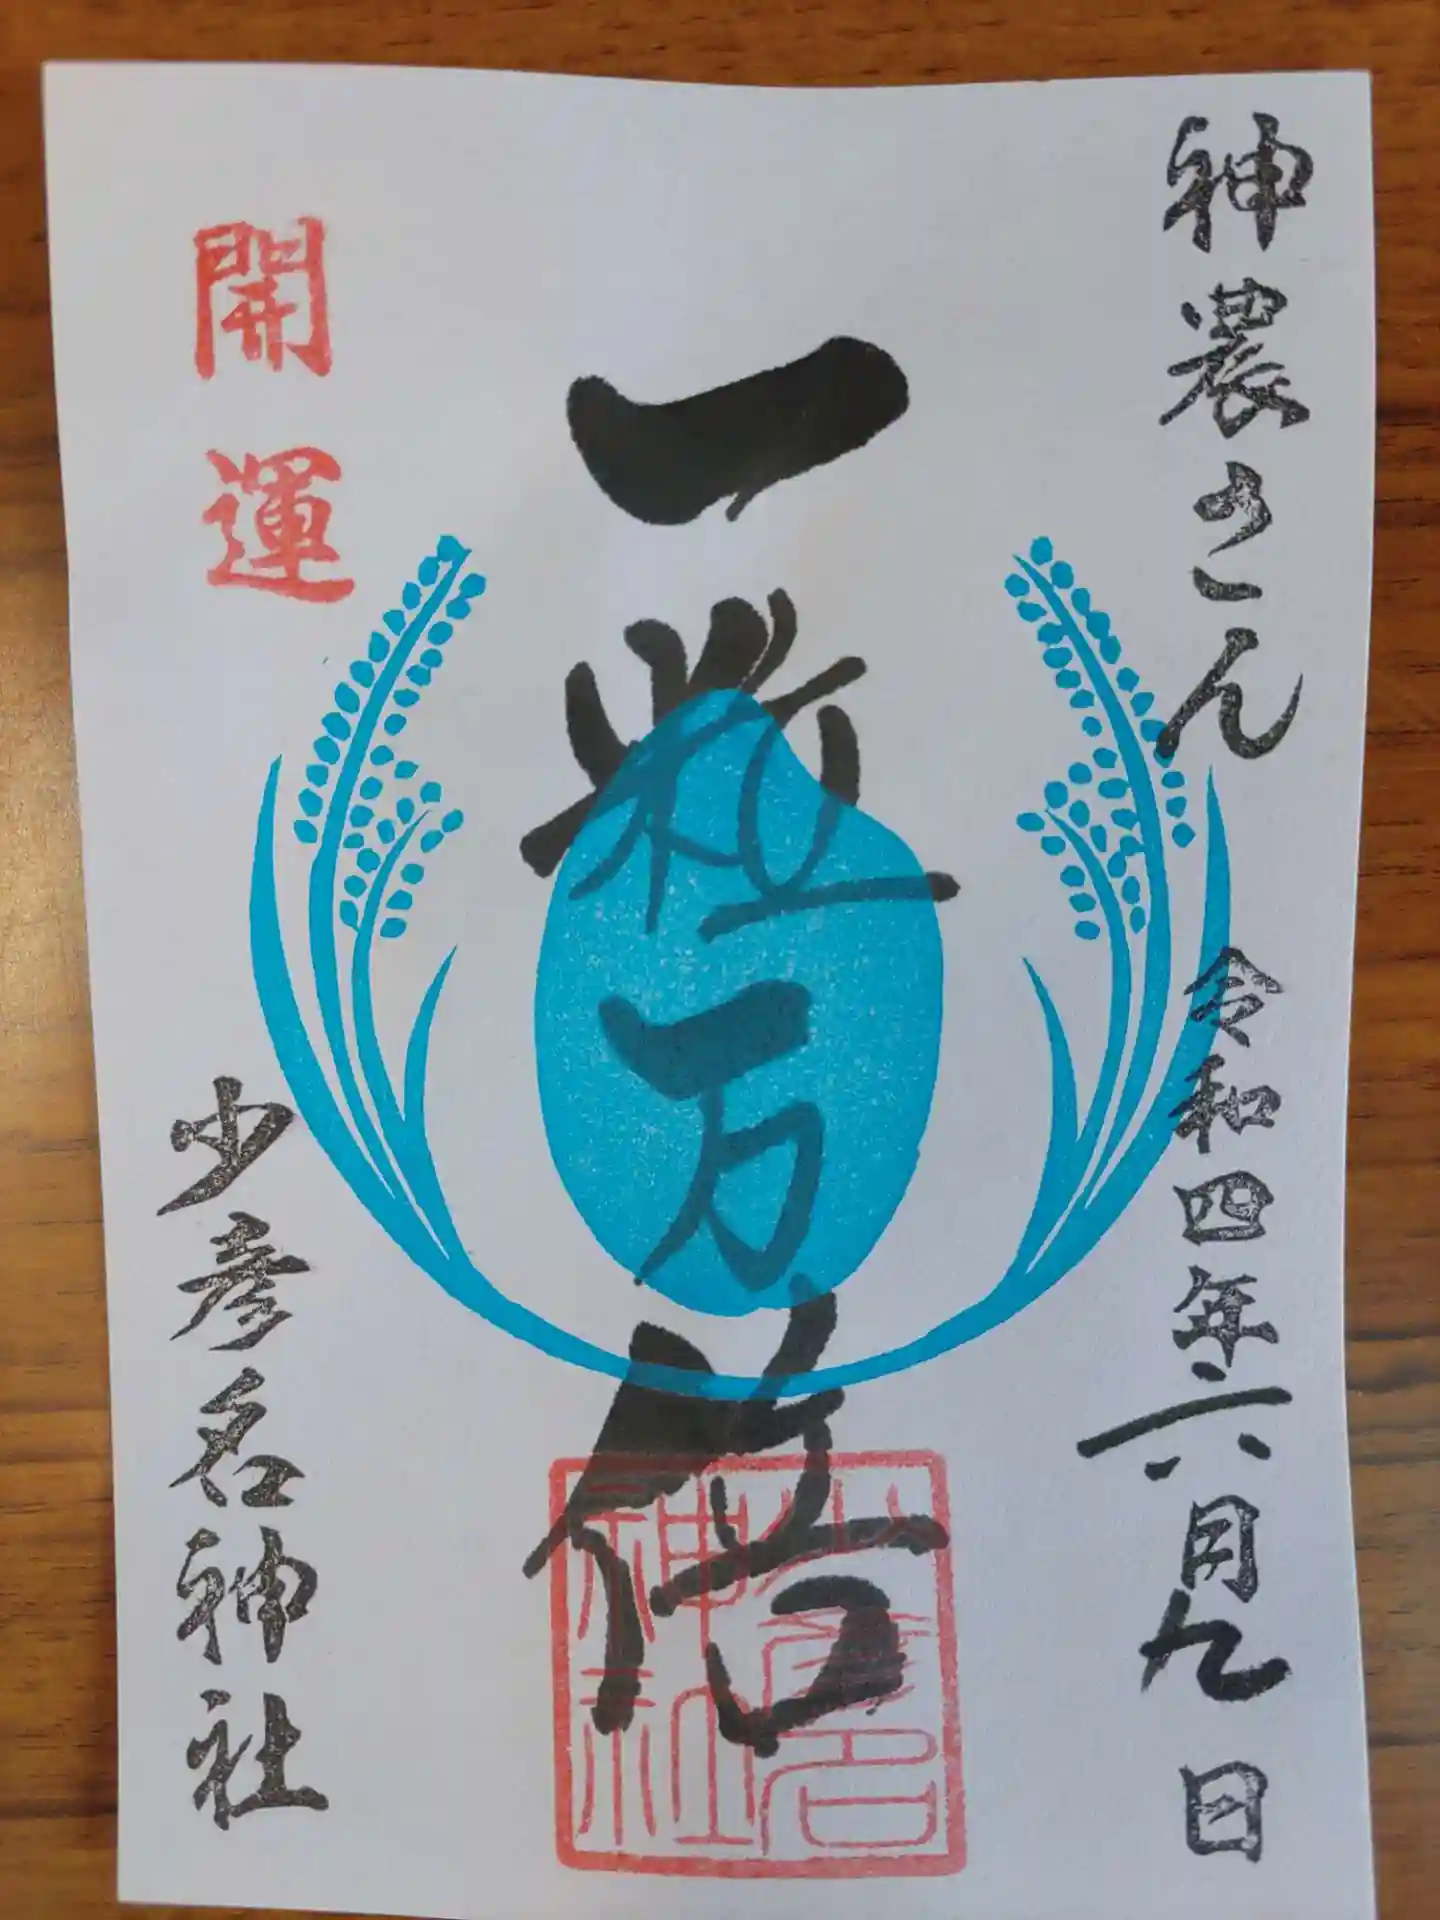 神農さん　令和四年六月九日
一粒万倍
開運
少彦名神社
少彦名
神社